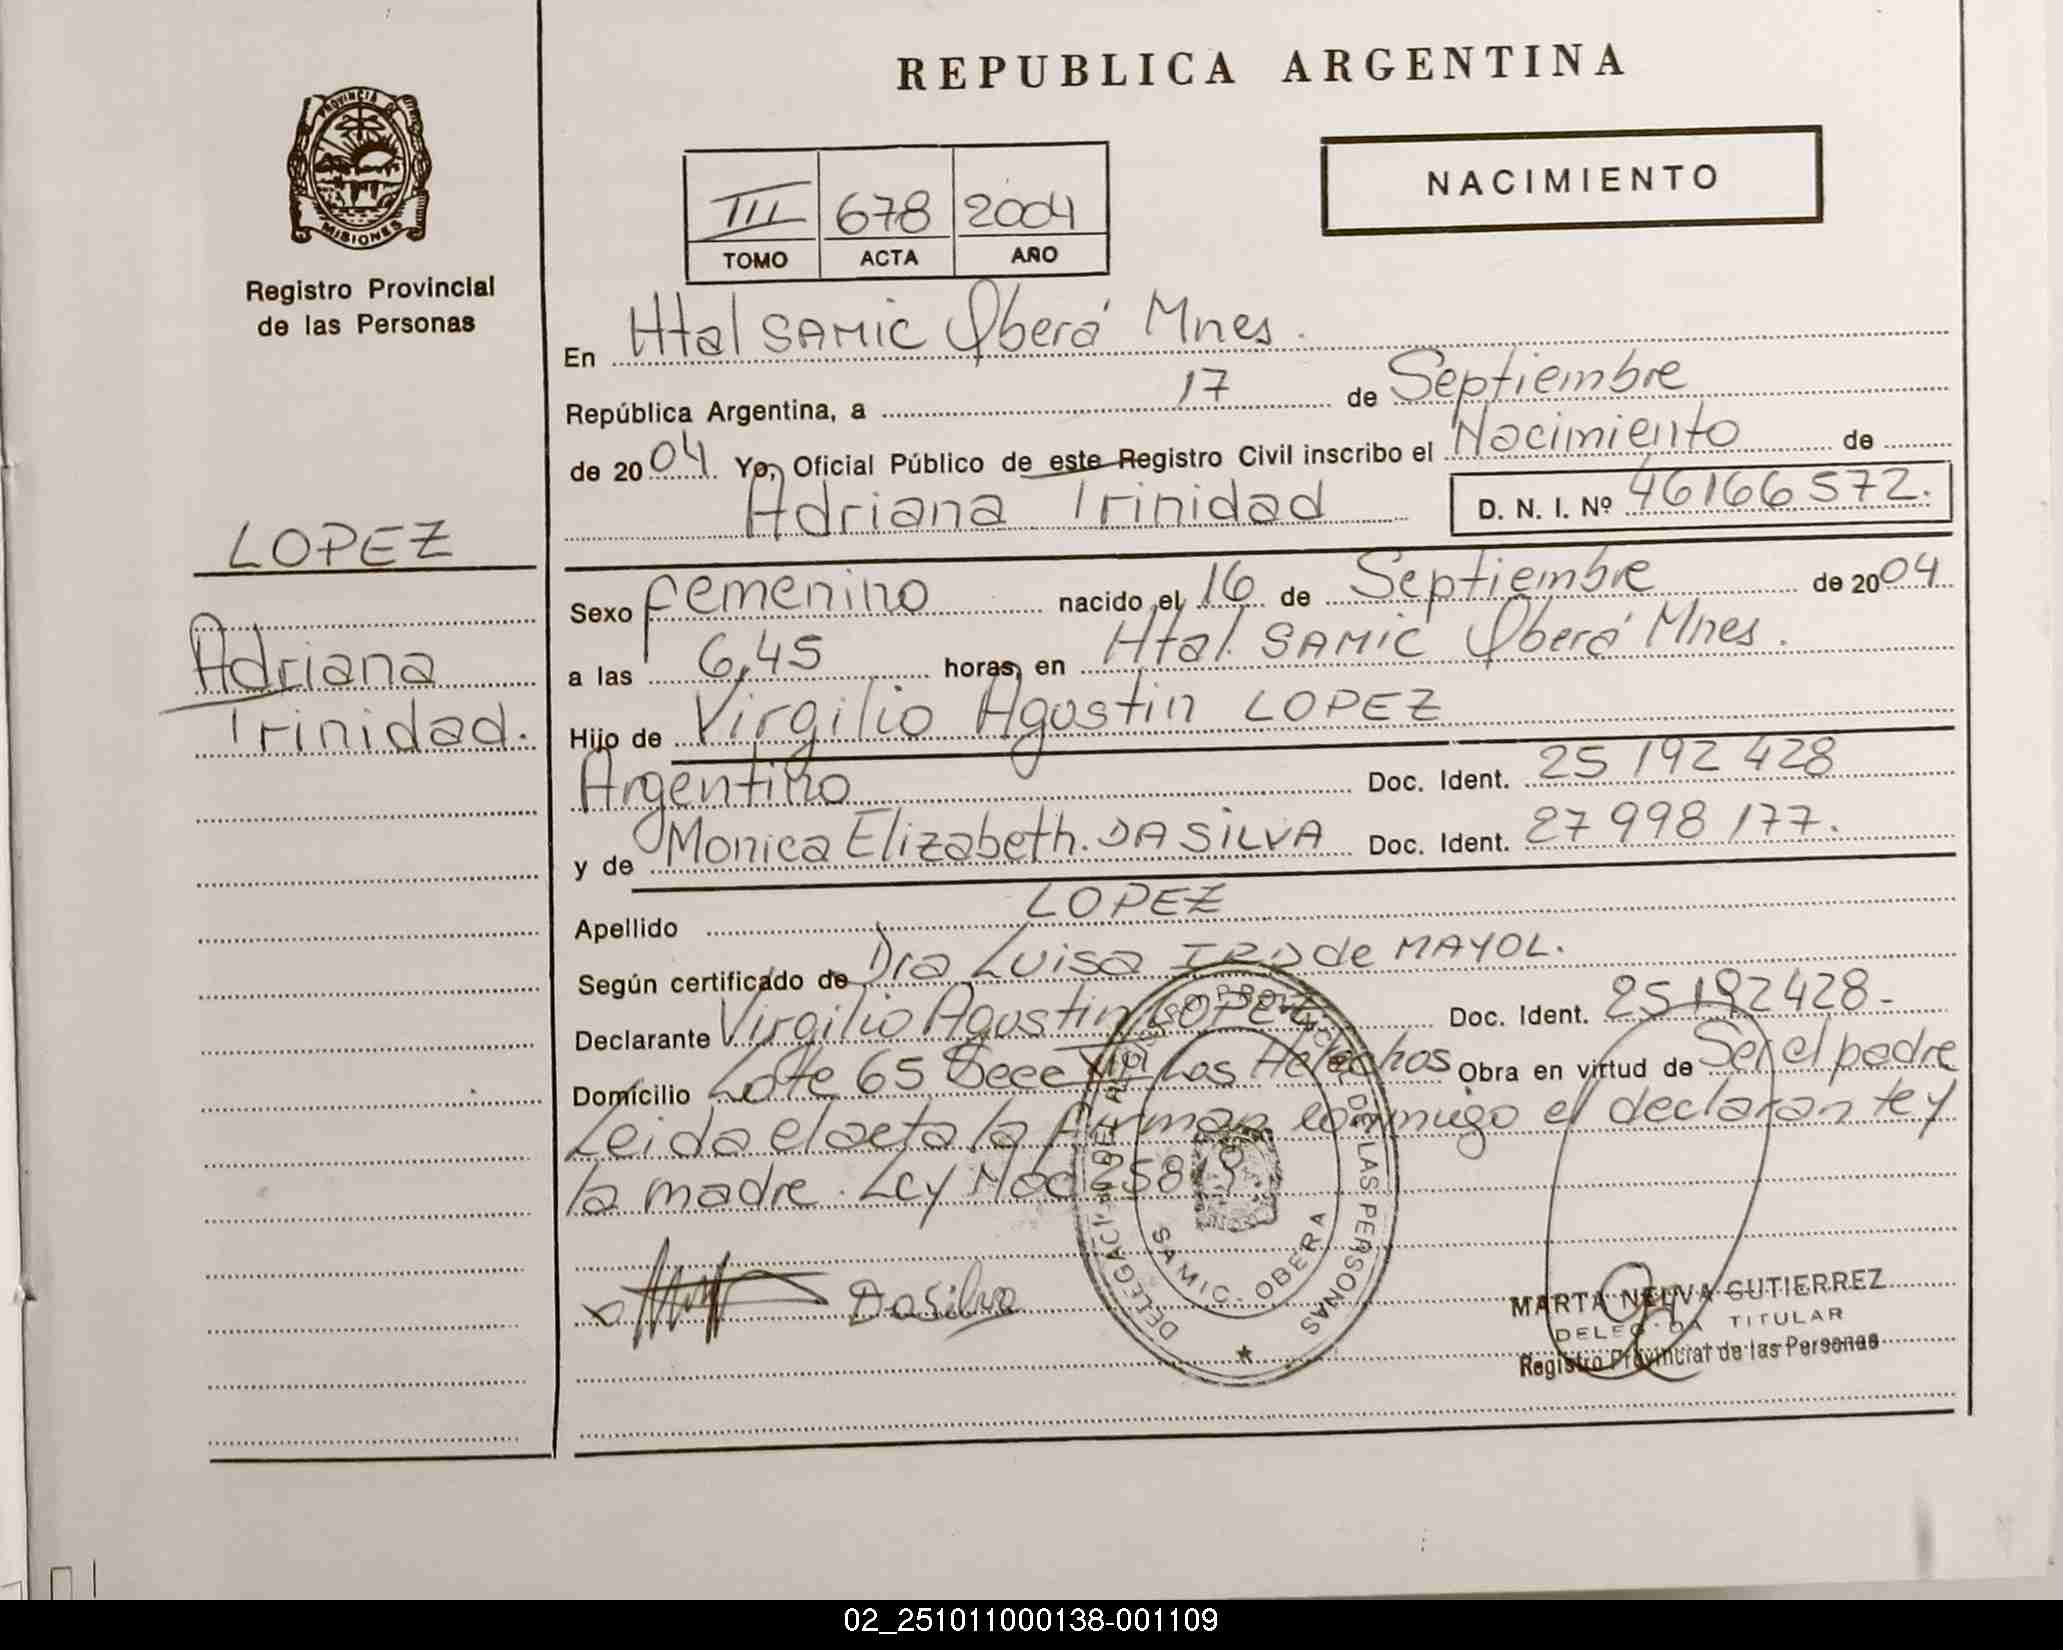 REPUBLICA ARGENTINA
PROVINCIA DE
MISIONES
Registro Provincial
de las Personas
III 678 2004
TOMO ACTA AÑO
NACIMIENTO
En Htal SAMIC Oberá Mnes.
República Argentina, a 17 de Septiembre
de 2004. Yo, Oficial Público de este Registro Civil inscribo el Nacimiento de
Adriana Trinidad D. N. I. Nº 46166572.
LOPEZ
Adriana
Trinidad.
Sexo femenino nacido el 16 de Septiembre de 2004
a las 6,45 horas, en Htal. SAMIC Oberá Mnes.
Hijo de Virgilio Agustin LOPEZ
Argentino Doc. Ident. 25 192 428
y de Monica Elizabeth. DA SILVA Doc. Ident. 27 998 177.
Apellido LOPEZ
Según certificado de Dra Luisa de MAYOL.
Declarante Virgilio Agustin LOPEZ Doc. Ident. 25192428-
Domicilio Lote 65 Secc Los Helechos Obra en virtud de Ser el padre
Leida el acta la firman conmigo el declarante y
la madre. Ley Nac
DaSilva
DE LAS PERSONAS
SAMIC - OBERA
MARTA NELVA GUTIERREZ
DELEGADA TITULAR
Registro Provincial de las Personas
02_251011000138-001109